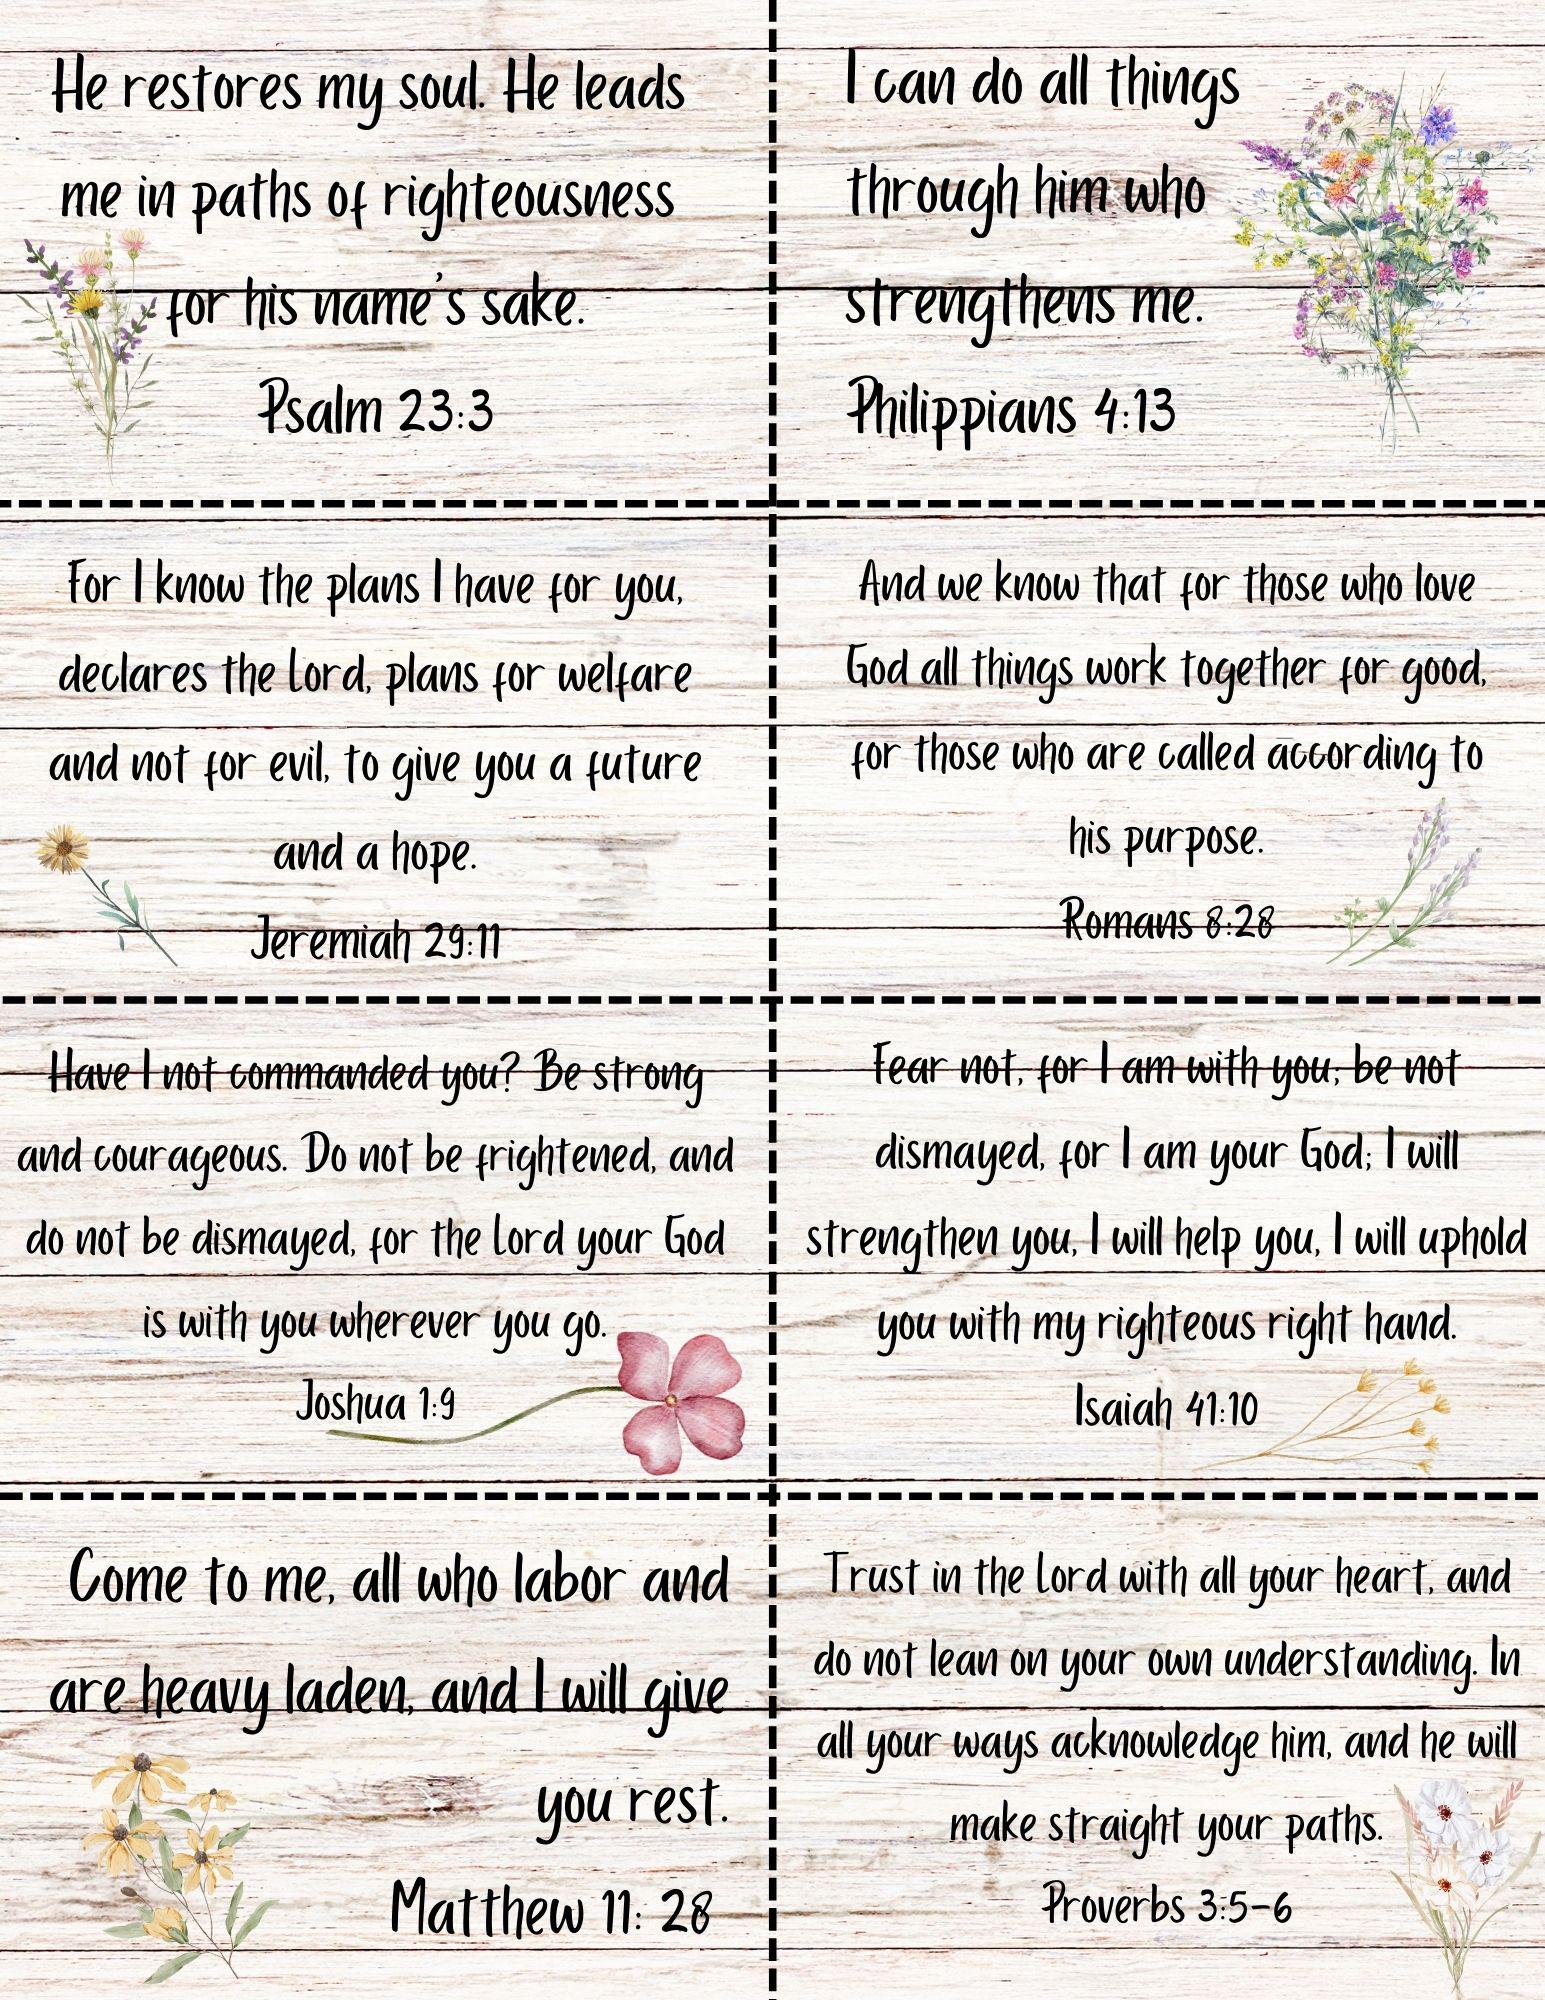 He restores my soul. He leads
me in paths of righteousness
for his name's sake.
Psalm 23:3
I can do all things
through him who
strengthens me.
Philippians 4:13
For I know the plans I have for you,
declares the Lord, plans for welfare
and not for evil, to give you a future
and a hope.
Jeremiah 29:11
And we know that for those who love
God all things work together for good,
for those who are called according to
his purpose.
Romans 8:28
Have I not commanded you? Be strong
and courageous. Do not be frightened, and
do not be dismayed, for the Lord your God
is with you wherever you go.
Joshua 1:9
Fear not, for I am with you; be not
dismayed, for I am your God; I will
strengthen you, I will help you, I will uphold
you with my righteous right hand.
Isaiah 41:10
Come to me, all who labor and
are heavy laden, and I will give
you rest.
Matthew 11: 28
Trust in the Lord with all your heart, and
do not lean on your own understanding. In
all your ways acknowledge him, and he will
make straight your paths.
Proverbs 3:5-6